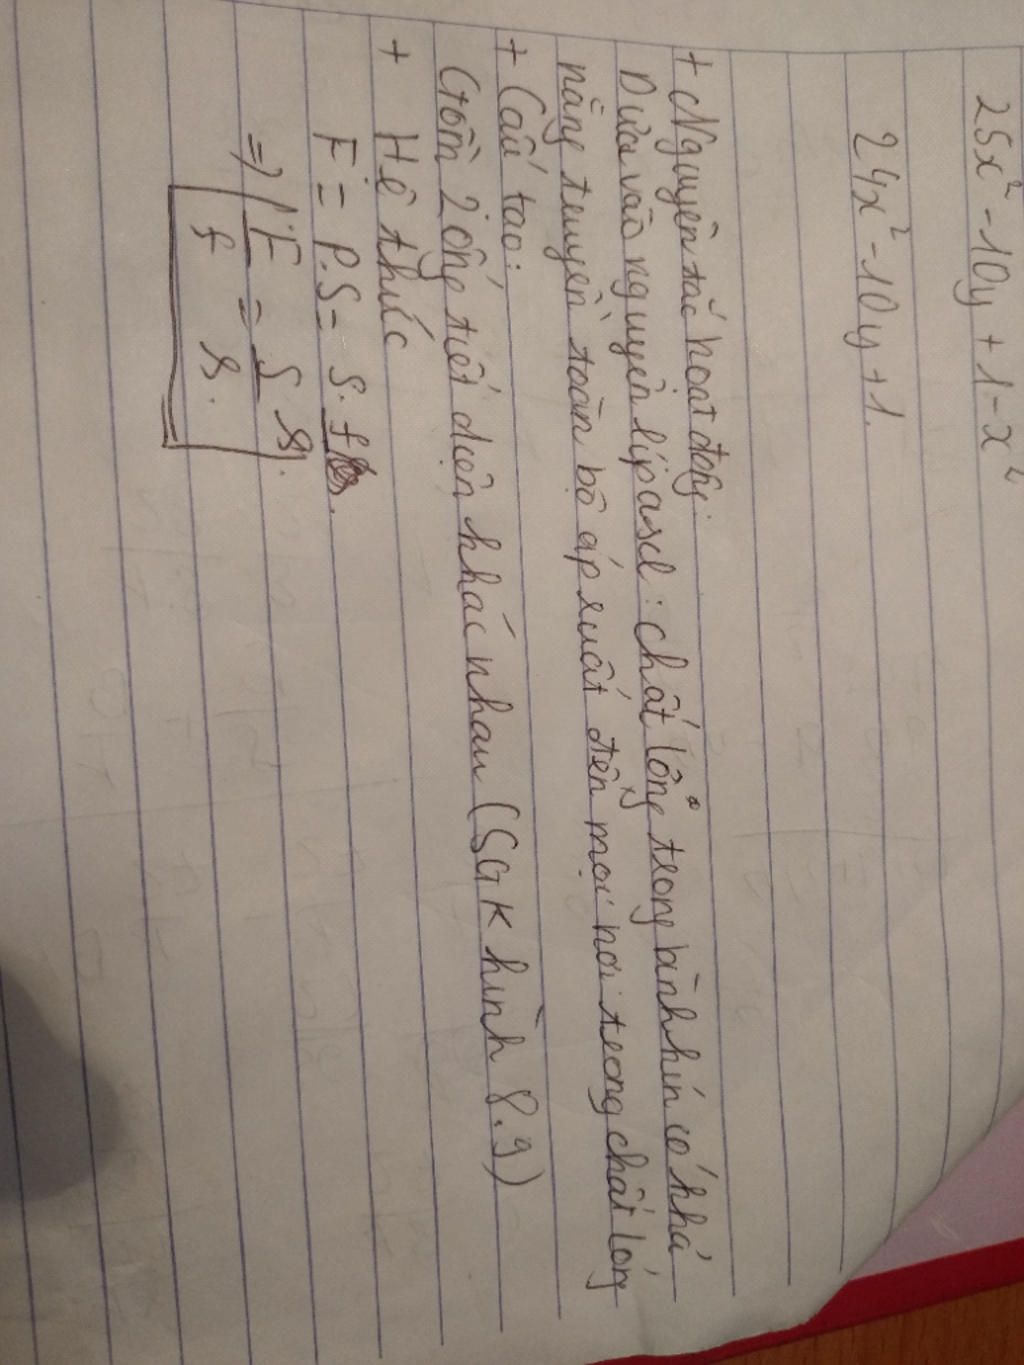 25x² - 10y + 1 - x²
24x² - 10y + 1.
+ Nguyên tắc hoạt động:
Dựa vào nguyên lí pascl : chất lỏng trong bình kín có khả
năng truyền toàn bộ áp xuất đến mọi nơi trong chất lỏng
+ Cấu tạo:
Gồm 2 ống tiết diện khác nhau (SGK hình 8.9)
+ Hệ thức
F = P.S = S. f
=> F = S
f s.